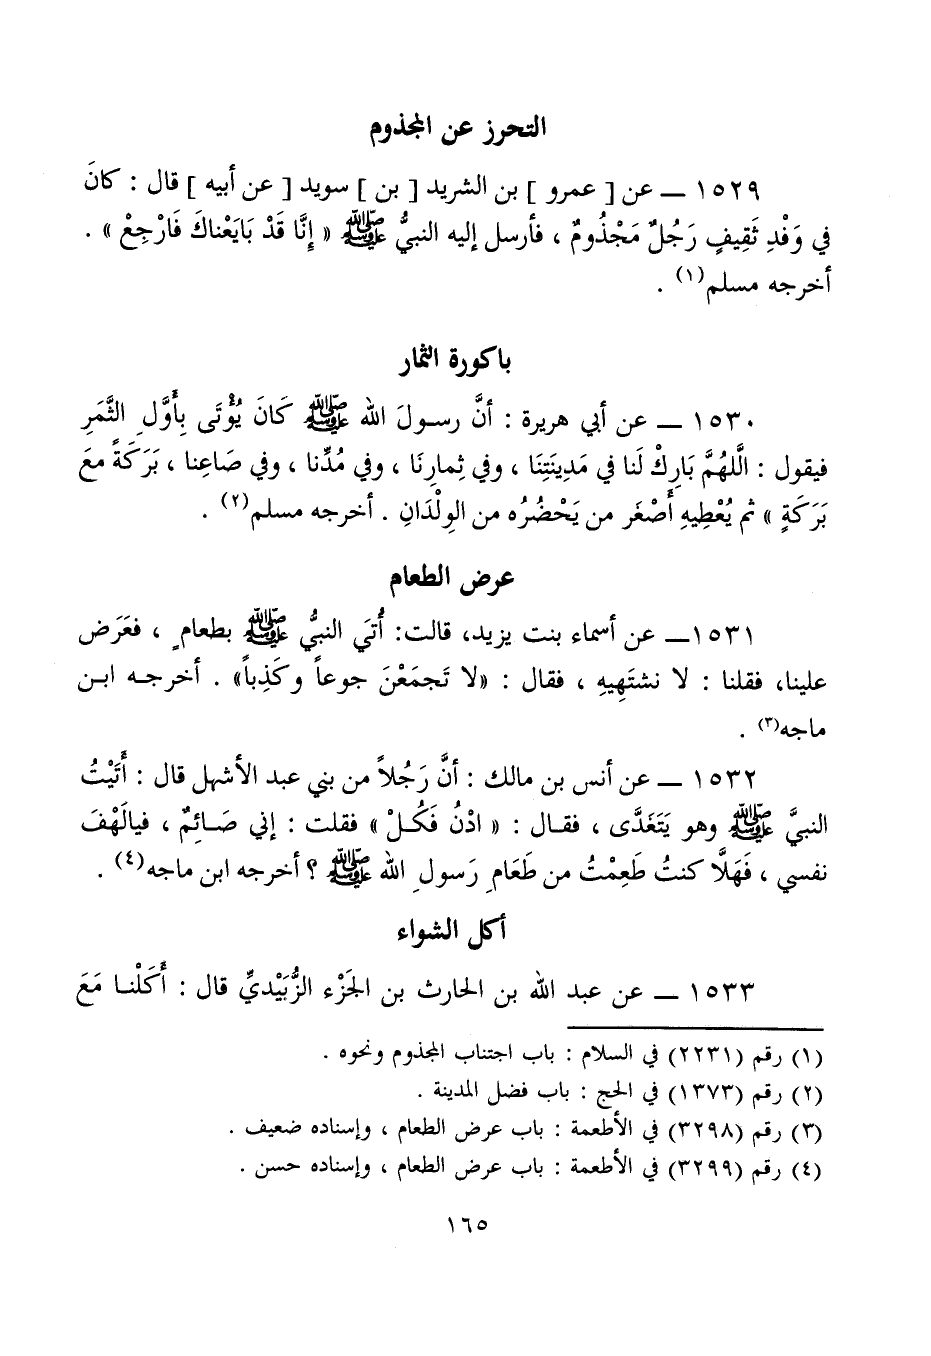 التحرز عن المجذوم
١٥٢٩ ــ عن [ عمرو ] بن الشريد [ بن ] سويد [ عن أبيه ] قال : كانَ
في وَفْدِ ثَقِيفٍ رَجُلٌ مَجْذُومٌ ، فأرسل إليه النبيُّ ﷺ « إِنَّا قَدْ بَايَعْناكَ فَارْجِعْ » .
أخرجه مسلم(١) .
باكورة الثمار
١٥٣٠ ــ عن أبي هريرة : أنَّ رسولَ الله ﷺ كَانَ يُؤْتَى بِأَوَّلِ الثَّمَرِ
فيقول : الَّلهُمَّ بَارِكْ لَنا في مَدِينَتِنَا ، وفي ثِمارِنَا ، وفي مُدِّنا ، وفي صَاعِنا ، بَرَكَةً معَ
بَرَكَةٍ » ثم يُعْطِيهِ أَصْغَر من يَحْضُرُه من الوِلْدَانِ . أخرجه مسلم(٢) .
عرض الطعام
١٥٣١ــ عن أسماء بنت يزيد، قالت: أُتيَ النبيُّ ﷺ بطعامٍ ، فعَرَض
علينا، فقلنا : لا نشتَهِيهِ ، فقال : «لا تَجمَعْنَ جوعاً وكَذِباً» . أخرجه ابن
ماجه(٣) .
١٥٣٢ ــ عن أنس بن مالك : أنَّ رَجُلاً من بني عبد الأشهل قال : أَتَيْتُ
النبيَّ ﷺ وهو يَتَغَدَّى ، فقال : « ادْنُ فَكُلْ » فقلت : إني صَائِمٌ ، فيالَهْفَ
نفسي ، فَهَلَّا كنتُ طَعِمْتُ من طَعَامِ رَسولِ الله ﷺ ؟ أخرجه ابن ماجه(٤) .
أكل الشواء
١٥٣٣ ــ عن عبد الله بن الحارث بن الجَزْء الزُّبَيْديِّ قال : أَكَلْنا مَعَ
(١) رقم (٢٢٣١) في السلام : باب اجتناب المجذوم ونحوه .
(٢) رقم (١٣٧٣) في الحج : باب فضل المدينة .
(٣) رقم (٣٢٩٨) في الأطعمة : باب عرض الطعام ، وإسناده ضعيف .
(٤) رقم (٣٢٩٩) في الأطعمة : باب عرض الطعام ، وإسناده حسن .
١٦٥